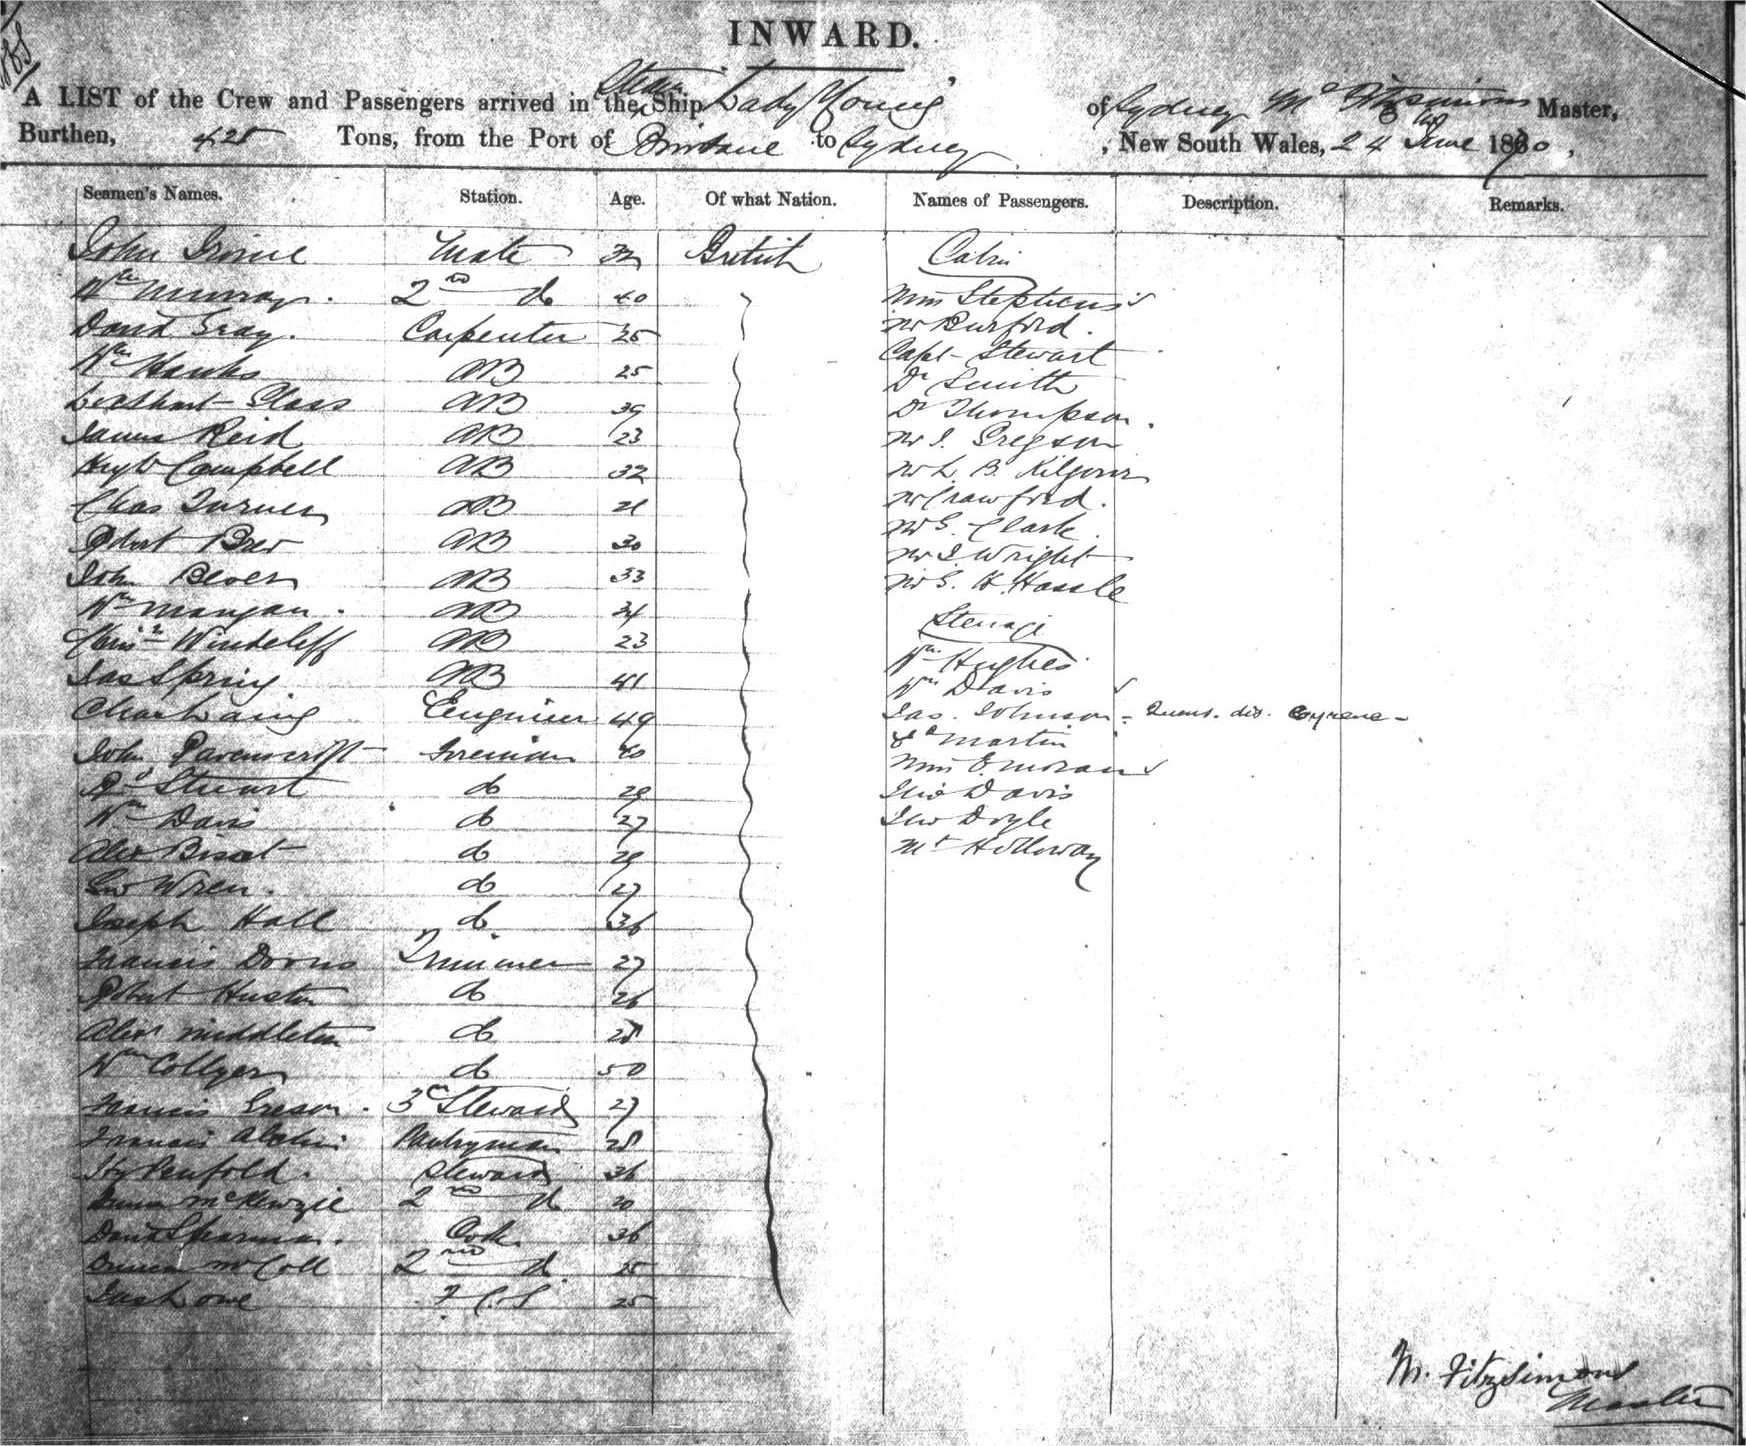 INWARD.
A LIST of the Crew and Passengers arrived in the Steam Ship "Lady Young" of Sydney M. Fitzsimons Master,
Burthen, 425 Tons, from the Port of Brisbane to Sydney, New South Wales, 24th June 1870,
Seamen's Names. Station. Age. Of what Nation. Names of Passengers. Description. Remarks.
John Irvine Mate British Cabin
Wm Murray. 2nd do 40 Mrs Stephens
David Gray. Carpenter 25 Mr Burford.
Wm Hawks AB 25 Capt Stewart
Glass AB 39 Dr Smith
James Reid AB 23 Dr Thompson.
Hugh Campbell AB 32 Mr J. Gregson
Chas Turner AB 21 Mr L. B. Kilgour
Robert AB 30 Mr Crawford.
John AB 33 Mr G. Clark.
Wm Mangan. AB 34 Mr J. Wright
AB 23 Mr G. H. Hassle
Jas Spring AB 41 Steerage
Chas Laing Engineer 49 Wm Hughes
John Ravenscroft Fireman 40 Wm Davis
Rd Stuart do 29 Jas. Johnson
Wm Davis do 27 Martin
Alex do 29 Mrs E. Moran
Geo Wren. do 27 Davis
Joseph Hall do 36 Doyle
Francis Trimmer 27 Holloway
Robert Huston do 26
Alexr Middleton do 28
Wm Collyer do 50
Francis 3rd Steward 27
Francis Pantryman 28
Hy Penfold. Steward 36
McKenzie 2nd do 20
David Cook 36
Duncan McColl 2nd do 25
Jas Lowe 25
M. Fitzsimons
Master